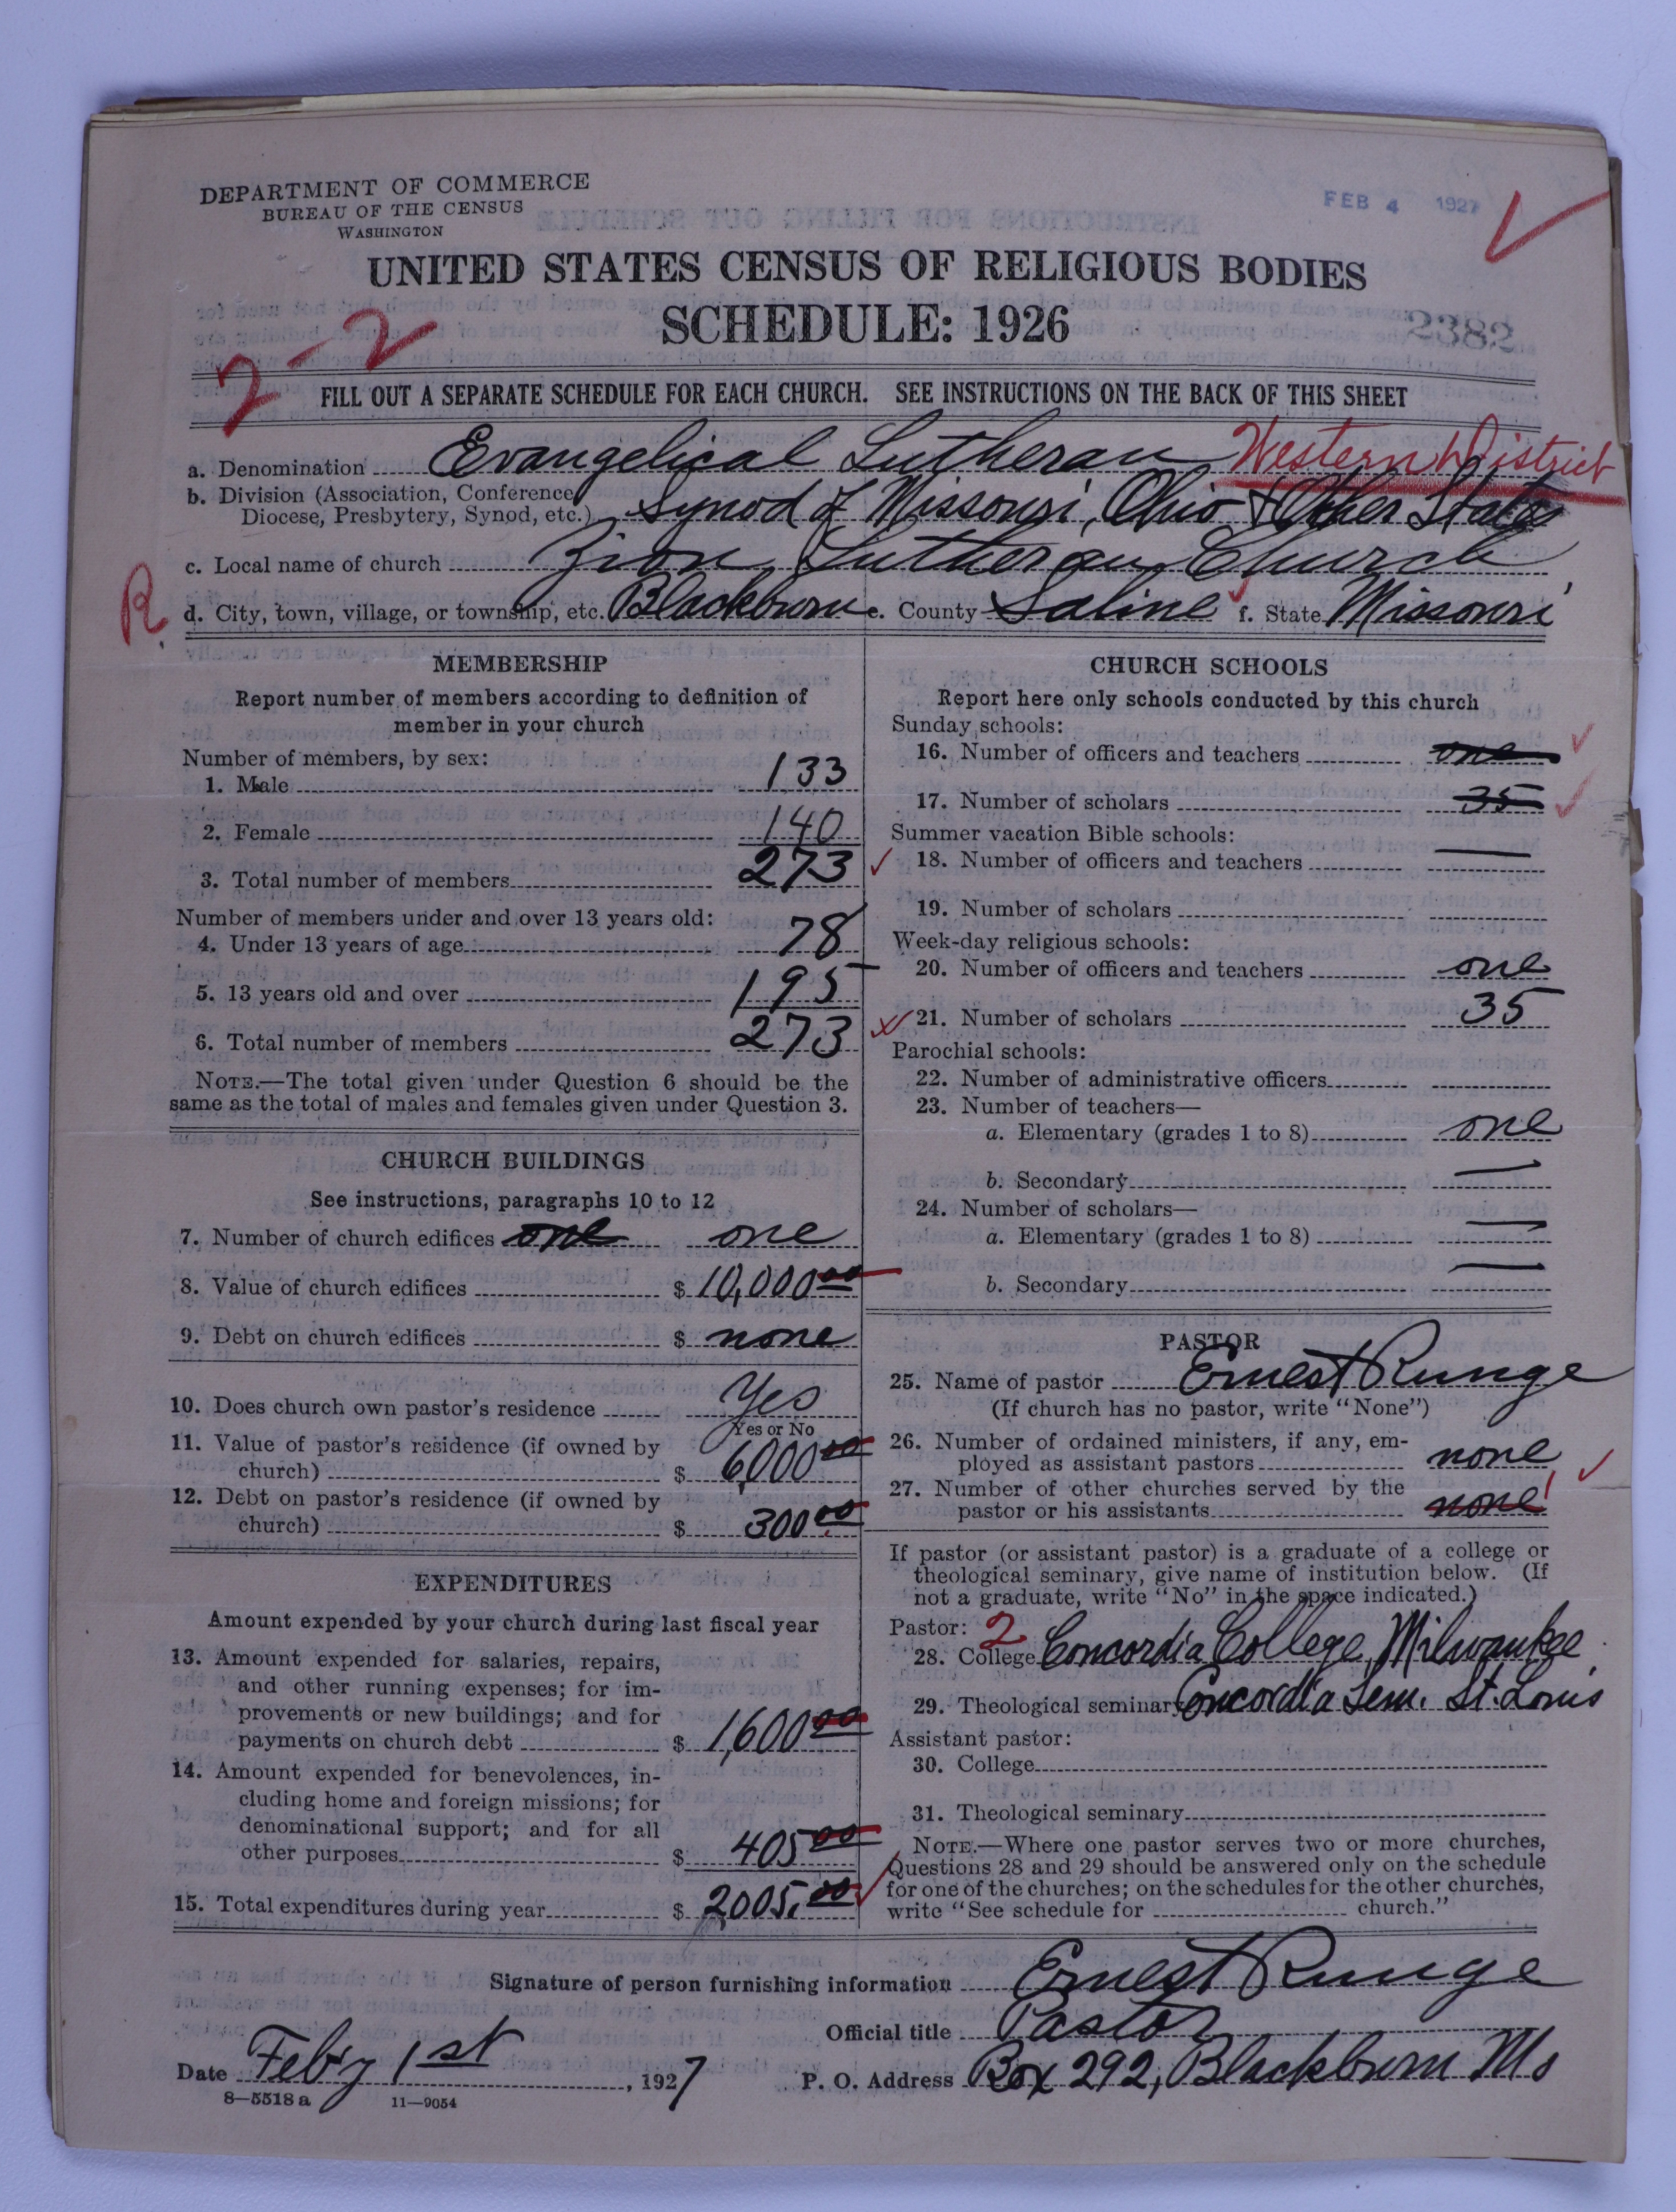 DEPARTMENT OF COMMERCE
BUREAU OF THE CENSUS
WASHINGTON
FEB 4 1927
UNITED STATES CENSUS OF RELIGIOUS BODIES
SCHEDULE: 1926
2382
2-2
FILL OUT A SEPARATE SCHEDULE FOR EACH CHURCH. SEE INSTRUCTIONS ON THE BACK OF THIS SHEET
a. Denomination Evangelical Lutheran Western District
b. Division (Association, Conference
Diocese, Presbytery, Synod, etc.) Synod of Missouri, Ohio & Other States
c. Local name of church Zion Lutheran Church
R. d. City, town, village, or township, etc. Blackburn e. County Saline f. State Missouri
MEMBERSHIP
Report number of members according to definition of
member in your church
Number of members, by sex:
1. Male 133
2. Female 140
3. Total number of members 273
Number of members under and over 13 years old:
4. Under 13 years of age 78
5. 13 years old and over 195
6. Total number of members 273
NOTE.—The total given under Question 6 should be the
same as the total of males and females given under Question 3.
CHURCH BUILDINGS
See instructions, paragraphs 10 to 12
7. Number of church edifices one one
8. Value of church edifices $ 10,000 00
9. Debt on church edifices $ none
10. Does church own pastor's residence Yes
Yes or No
11. Value of pastor's residence (if owned by
church) $ 6,000 00
12. Debt on pastor's residence (if owned by
church) $ 300 00
EXPENDITURES
Amount expended by your church during last fiscal year
13. Amount expended for salaries, repairs,
and other running expenses; for im-
provements or new buildings; and for
payments on church debt $ 1,600 00
14. Amount expended for benevolences, in-
cluding home and foreign missions; for
denominational support; and for all
other purposes $ 405 00
15. Total expenditures during year $ 2,005. 00
CHURCH SCHOOLS
Report here only schools conducted by this church
Sunday schools:
16. Number of officers and teachers one
17. Number of scholars 35
Summer vacation Bible schools:
18. Number of officers and teachers —
19. Number of scholars
Week-day religious schools:
20. Number of officers and teachers one
21. Number of scholars 35
Parochial schools:
22. Number of administrative officers
23. Number of teachers—
a. Elementary (grades 1 to 8) one
b. Secondary —
24. Number of scholars—
a. Elementary (grades 1 to 8) —
b. Secondary —
PASTOR
25. Name of pastor Ernest Runge
(If church has no pastor, write "None")
26. Number of ordained ministers, if any, em-
ployed as assistant pastors none
27. Number of other churches served by the
pastor or his assistants none 1
If pastor (or assistant pastor) is a graduate of a college or
theological seminary, give name of institution below. (If
not a graduate, write "No" in the space indicated.)
Pastor: 2
28. College Concordia College, Milwaukee
29. Theological seminary Concordia Sem. St. Louis
Assistant pastor:
30. College
31. Theological seminary
NOTE.—Where one pastor serves two or more churches,
Questions 28 and 29 should be answered only on the schedule
for one of the churches; on the schedules for the other churches,
write "See schedule for church."
Signature of person furnishing information Ernest Runge
Official title Pastor
Date Feb'y 1st, 1927 P. O. Address Box 292, Blackburn Mo
8—5518 a 11—9054